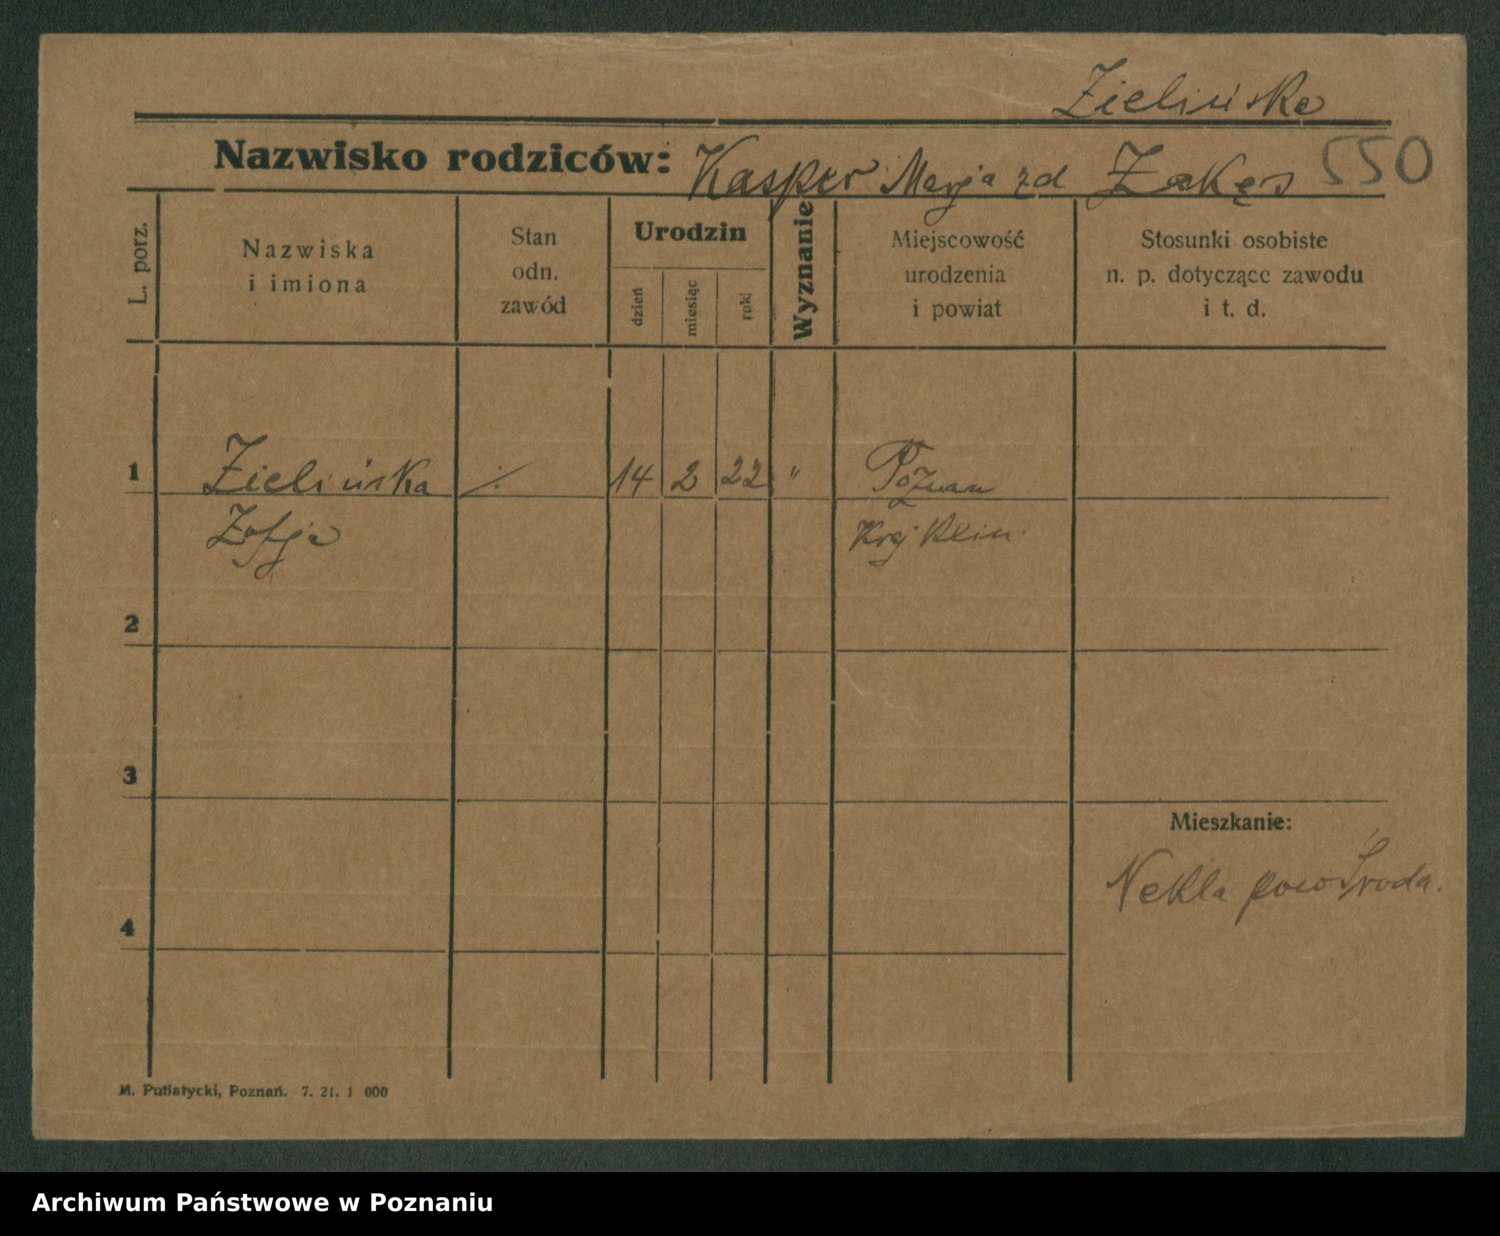 Zielińska
Nazwisko rodziców: Kasper Marja zd Zakęs 550
L. porz.
Nazwiska
i imiona
Stan
odn.
zawód
Urodzin
dzień
miesiąc
rok
Wyznanie
Miejscowość
urodzenia
i powiat
Stosunki osobiste
n. p. dotyczące zawodu
i t. d.
1 Zielińska ·/· 14 2 22 " Poznan
Zofja Kraj Klin.
2
3
Mieszkanie:
Nekla pow Środa.
4
M. Putiatycki, Poznań. 7. 21. 1 000
Archiwum Państwowe w Poznaniu